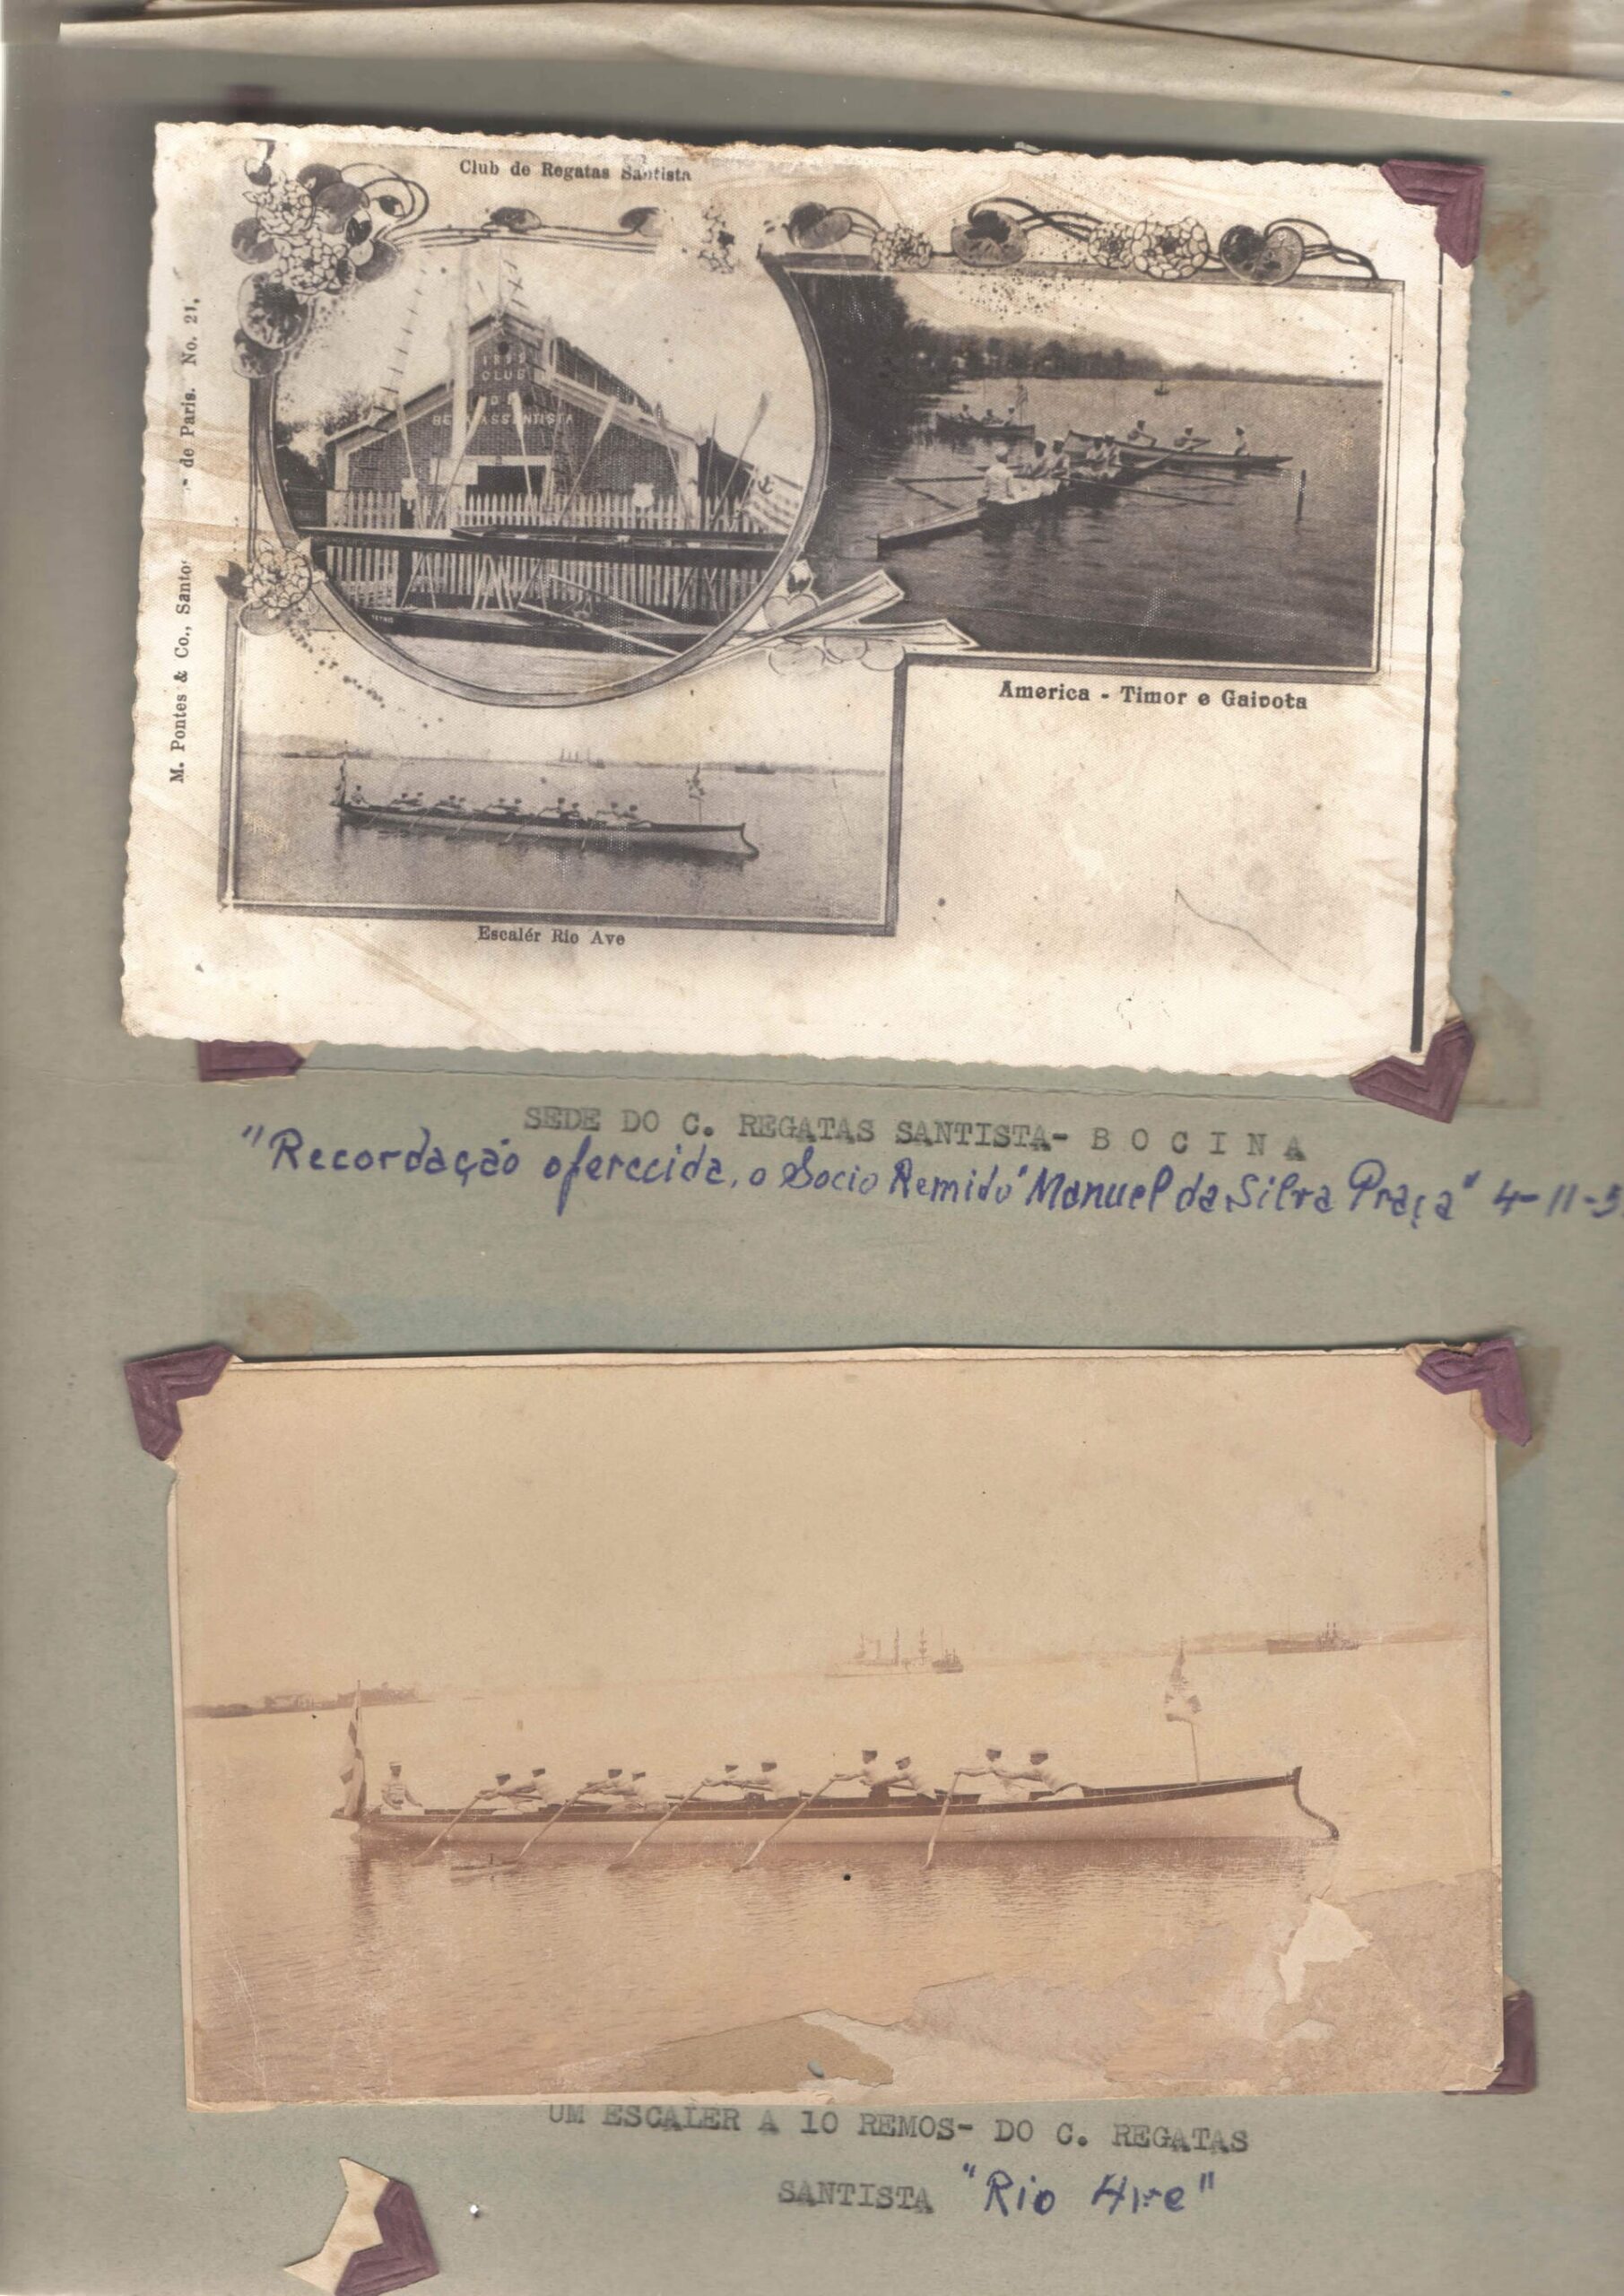 Club de Regatas Santista
M. Pontes & Co., Santos - de Paris. No. 21.
CLUB
America - Timor e Gaivota
Escalér Rio Ave
SEDE DO C. REGATAS SANTISTA- B O C I N A
"Recordação oferecida, o Socio Remido "Manuel da Silva Praça" 4-11-5
UM ESCALER A 10 REMOS- DO C. REGATAS
SANTISTA "Rio Ave"